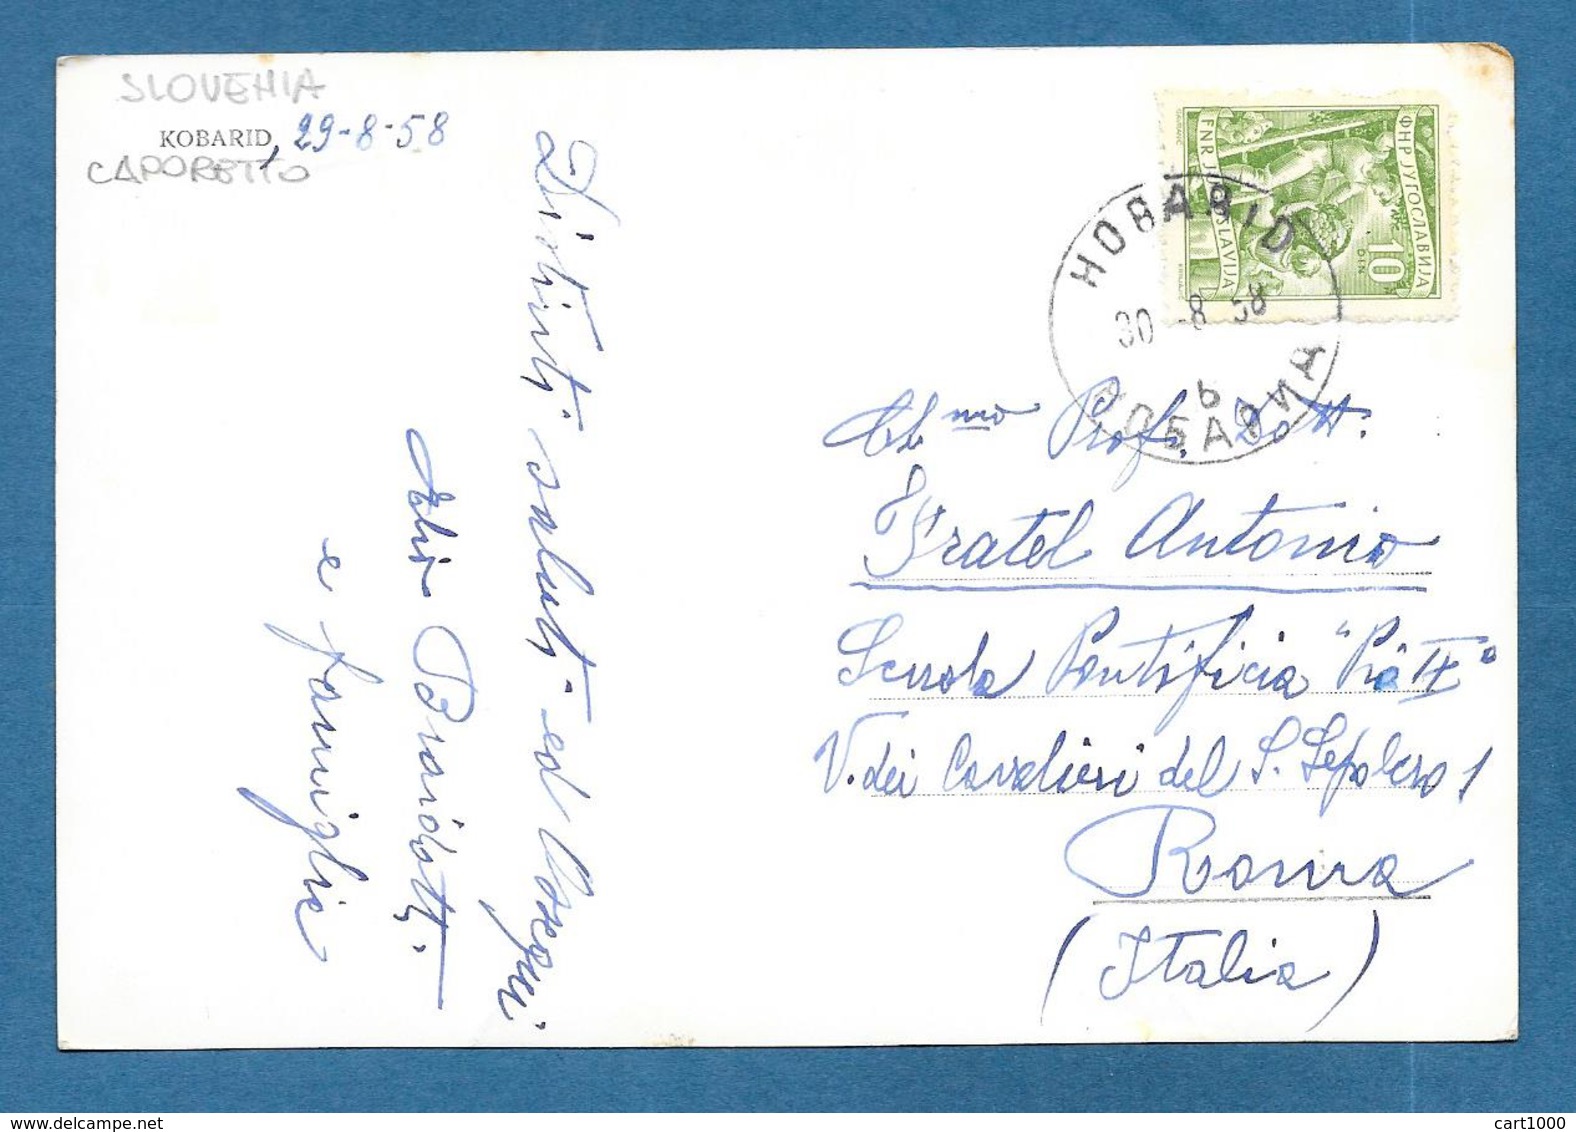 SLOVENIA
KOBARID, 29-8-58
CAPORETTO
Distinti saluti ed Ossequi
Braidotti
e famiglia
FNR JUGOSLAVIJA
ФНР ЈУГОСЛАВИЈА
10
DIN
KOBARID
30 -8 58
b
КОБАРИД
Ch.mo Prof. Dott.
Fratel Antonio
Scuola Pontificia "Pio IX"
V. dei Cavalieri del S. Sepolcro 1
Roma
(Italia)
cart1000